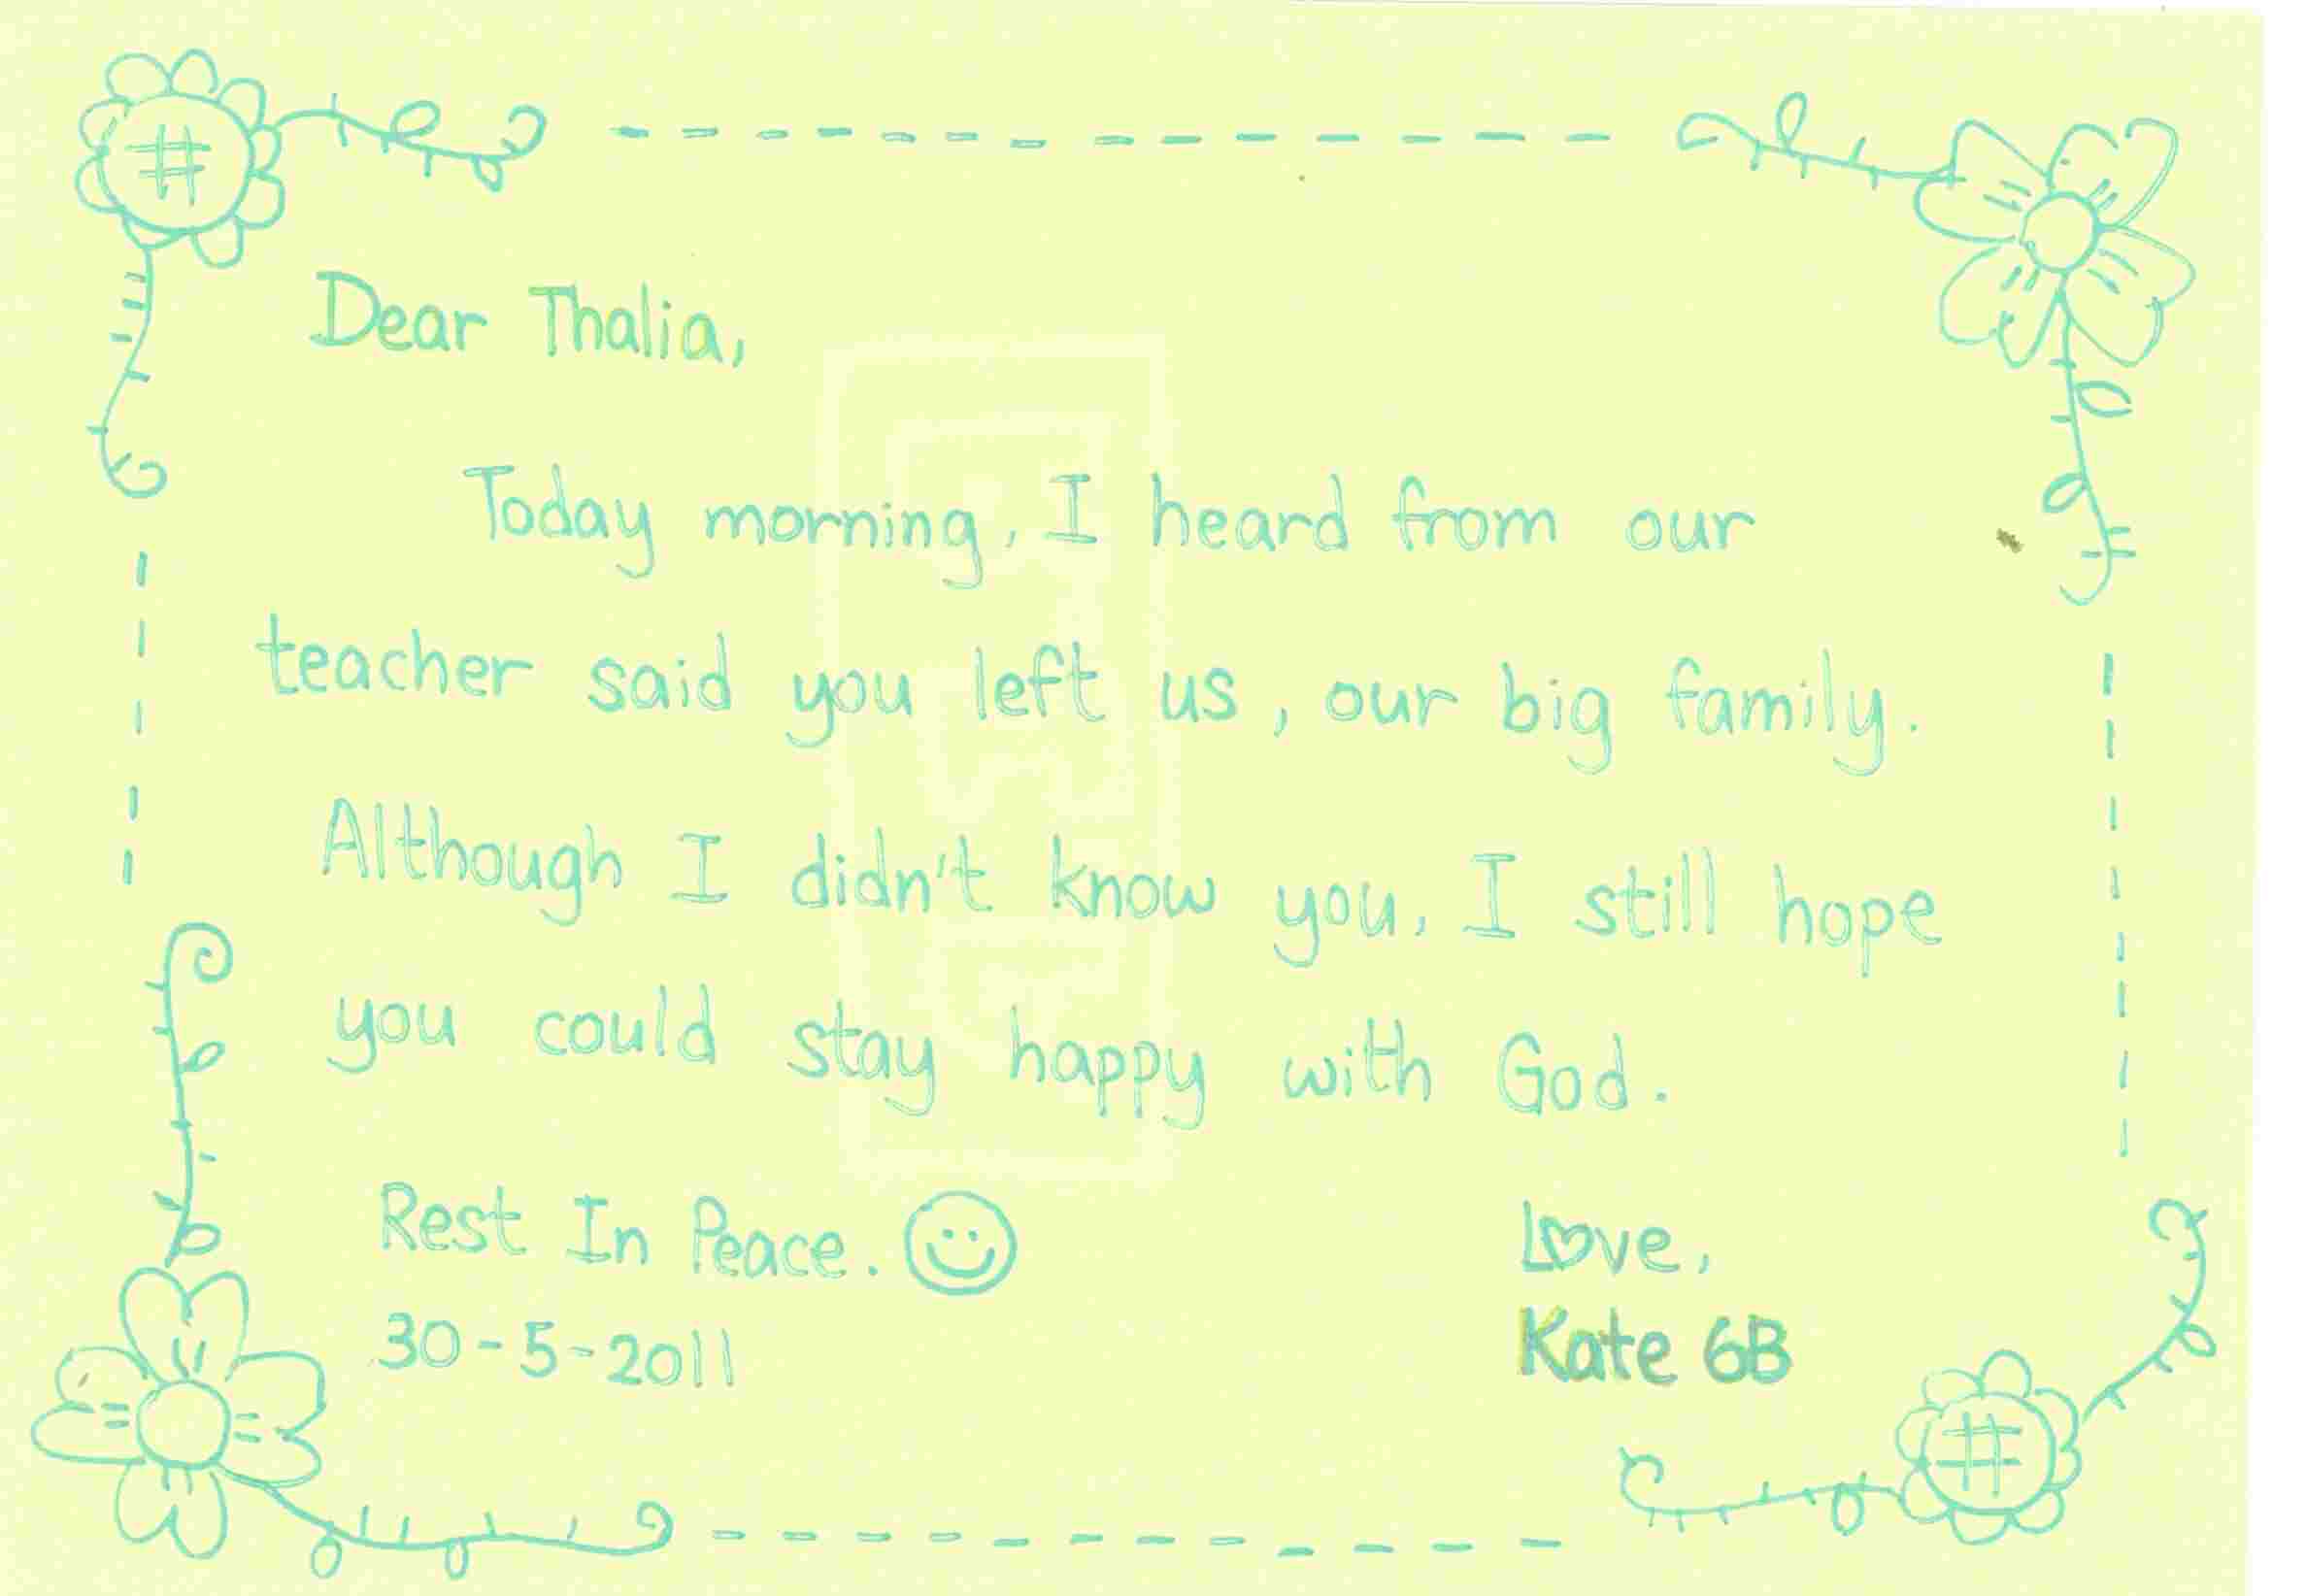 Dear Thalia,
Today morning, I heard from our
teacher said you left us, our big family.
Although I didn't know you, I still hope
you could stay happy with God.
Rest In Peace.
Love,
30-5-2011
Kate 6B